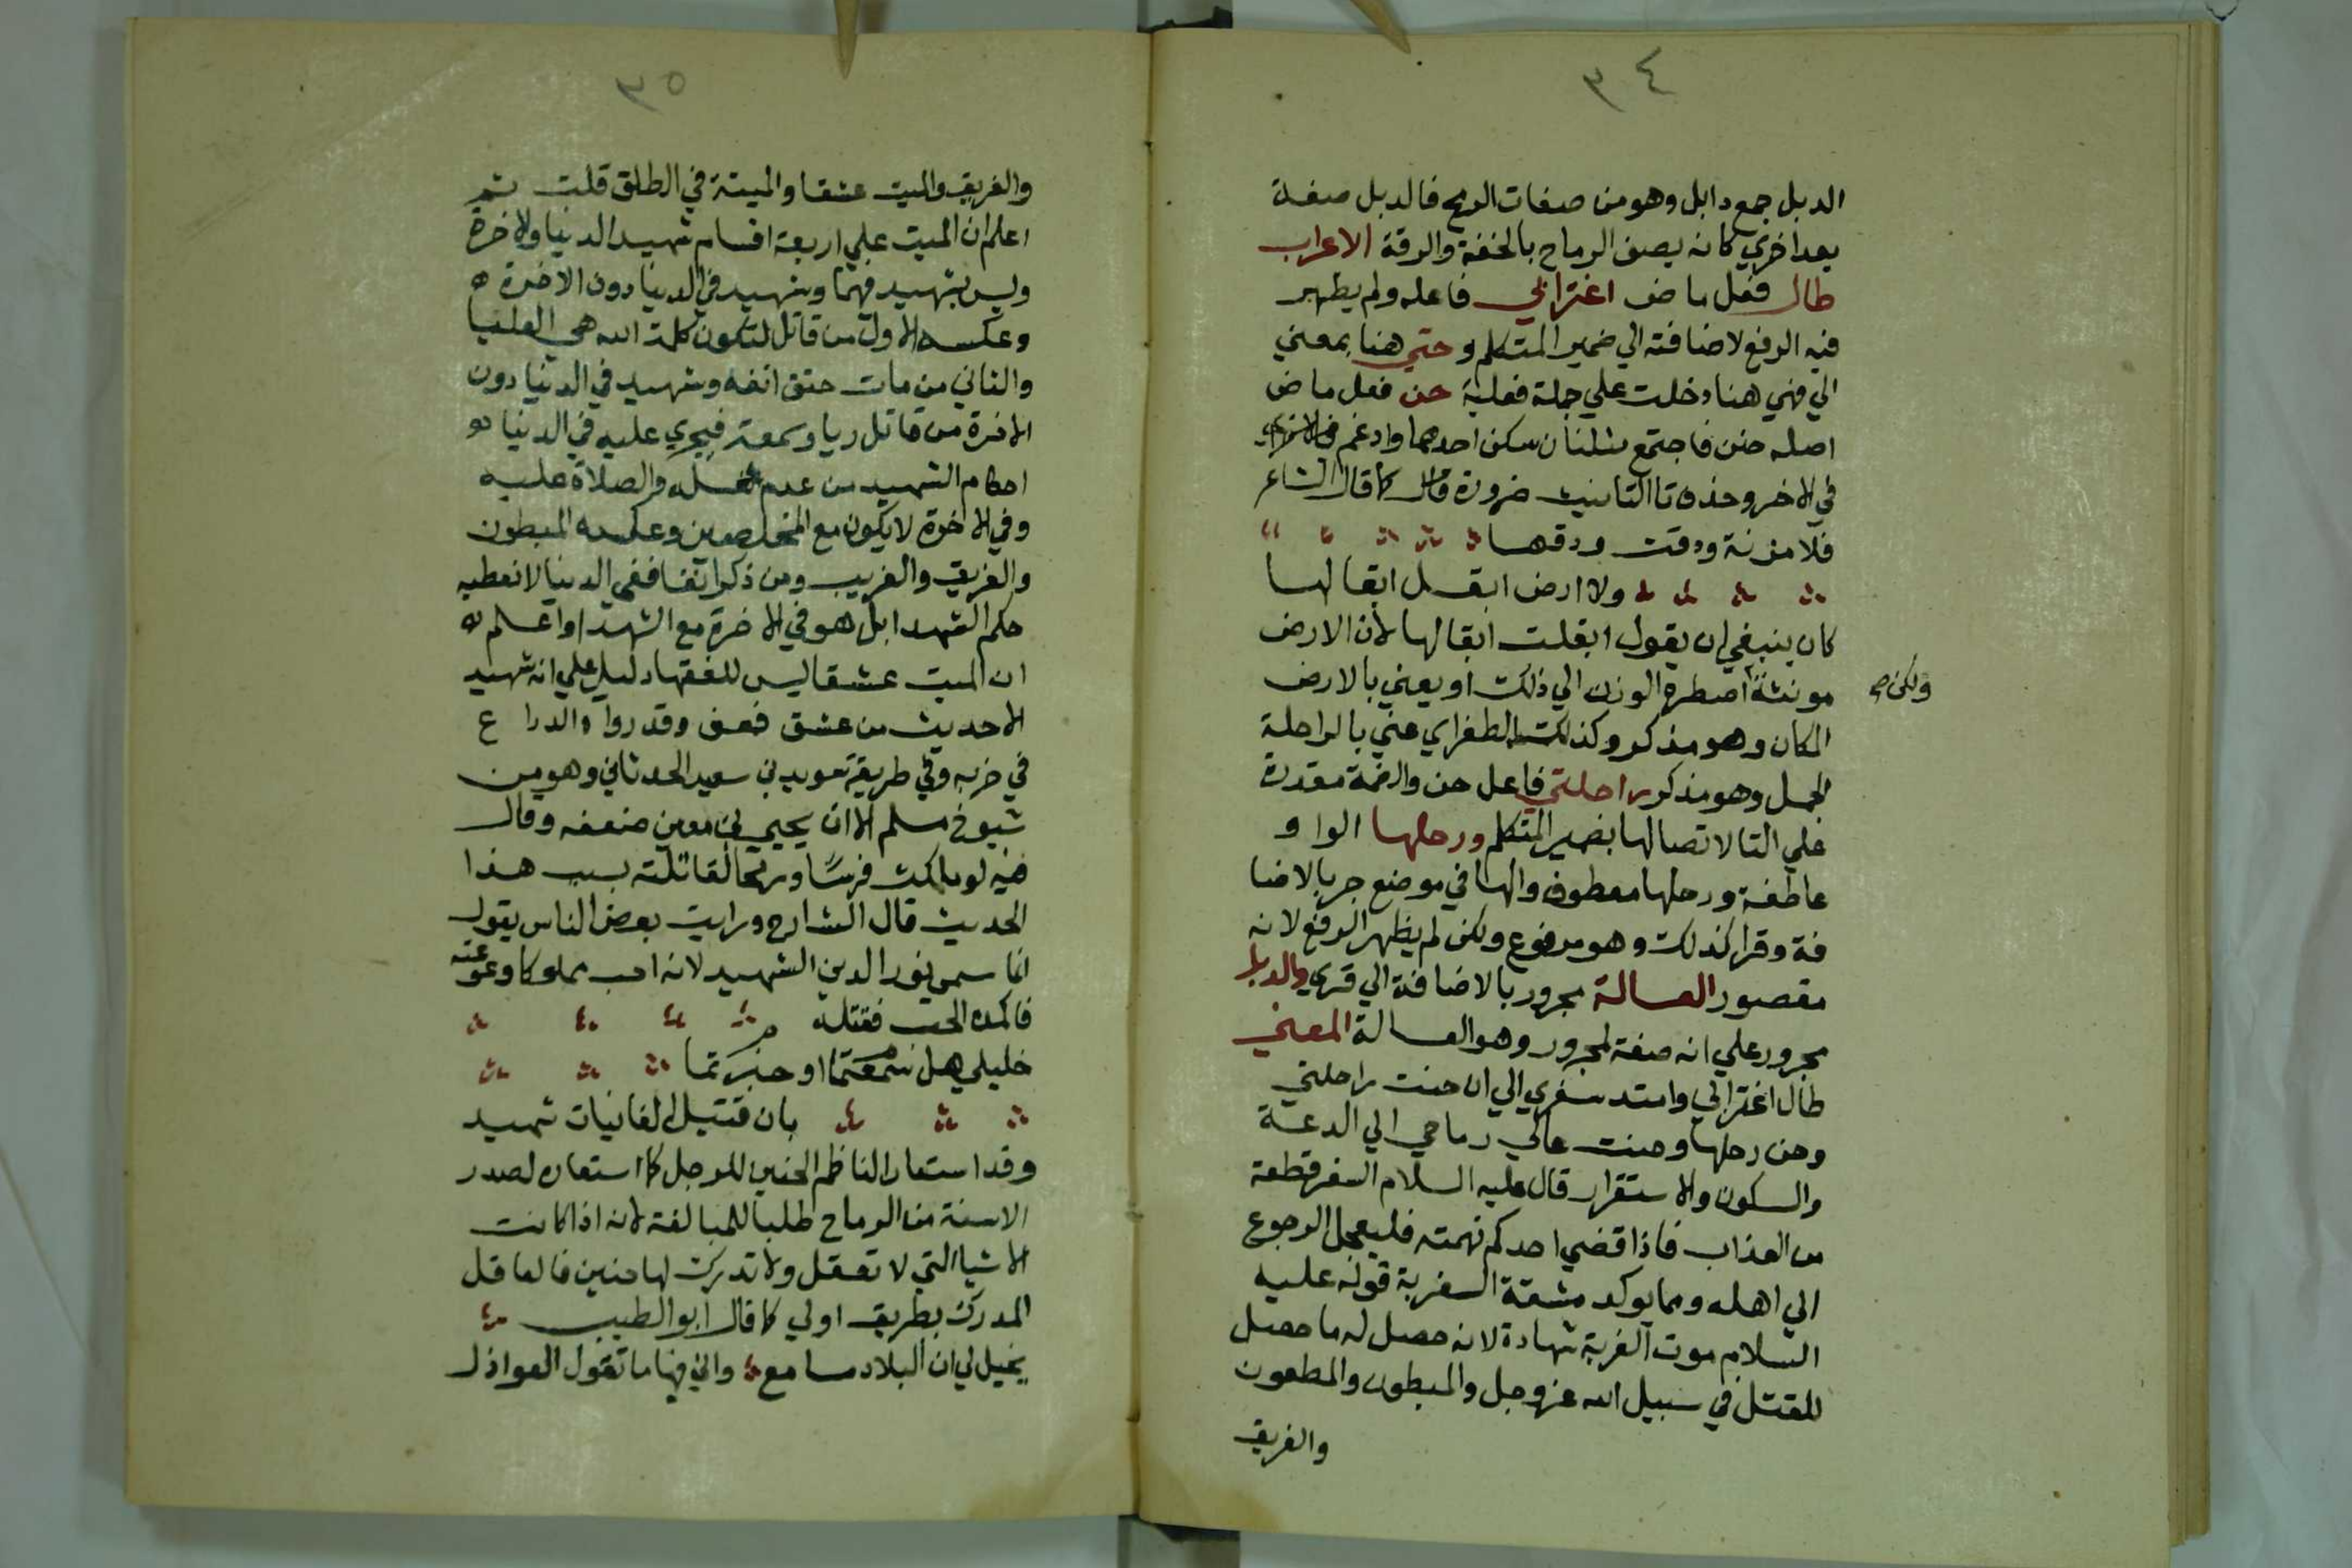 ٣٤
الدبل جمع دابل وهو من صفات الرمح فالدبل صفة
بعد اخري كانه يصف الرماح بالخفة والرقة الاعراب
طال فعل ماض اغترابي فاعله ولم يظهر
فيه الرفع لاضافته الي ضمير المتكلم وحتي هنا بمعني
الي فهي هنا دخلت علي جملة فعلية حن فعل ماض
اصله حنن فاجتمع مثلان سكن احدهما وادغم
في الاخر وحذف تا التانيث ضرورة كما قال الشاعر
فلا مزنة ودقت ودقها
ولا ارض ابقل ابقالها
كان ينبغي ان يقول ابقلت ابقالها لان الارض
مونثة اضطره الوزن الي ذلك او يعني بالارض
ولكن صح
المكان وهو مذكر وكذلك الطغراي عني بالراحلة
الجمل وهو مذكر راحلتي فاعل حن والضمة مقدرة
علي التا لاتصالها بضمير المتكلم ورحلها الواو
عاطفة ورحلها معطوف والها في موضع جر بالاضا
فة وقرا كذلك وهو مرفوع ولكن لم يظهر الرفع لانه
مقصور العسالة مجرور بالاضافة الي قري والدبل
مجرور علي انه صفة لمجرور وهو العسالة المعني
طال اغترابي وامتد سفري الي ان حنت راحلتي
وحن رحلها وحنت عالي رماحي الي الدعة
والسكون والاستقرار قال عليه السلام السفر قطعة
من العذاب فاذا قضي احدكم نهمته فليعجل الرجوع
الي اهله ومما يوكد مشقة السفرية قوله عليه
السلام موت الغربة شهادة لانه حصل له ما حصل
للمقتل في سبيل الله عز وجل والمبطون والمطعون
والغريق
٣٥
والغريق والميت عشقا والميتة في الطلق قلت ثم
اعلم ان الميت علي اربعة اقسام شهيد الدنيا والاخرة
وليس بشهيد فيهما وشهيد في الدنيا دون الاخرة
وعكسه الاول من قاتل لتكون كلمة الله هي العليا
والثاني من مات حتف انفه وشهيد في الدنيا دون
الاخرة من قاتل ريا وسمعة فيجري عليه في الدنيا
احكام الشهيد من عدم غسله والصلاة عليه
وفي الاخرة لا يكون مع المخلصين وعكسه المبطون
والغريق والغريب ومن ذكر انفا ففي الدنيا لا نعطيه
حكم الشهدا بل هو في الاخرة مع الشهدا واعلم
ان الميت عشقا ليس للفقها دليل علي انه شهيد
الا حديث من عشق فعف وقد رواه الدراع
في جزيه وفي طريقة سويد بن سعيد الحدثاني وهو من
شيوخ مسلم الا ان يحيي بن معين ضعفه وقال
فيه لو ملكت فرسًا ورمحا لقاتلته بسبب هذا
الحديث قال الشارح ورايت بعض الناس يقول
انما سمي نور الدين الشهيد لانه احب مملوكا وعف عنه
فاكمده الحب فقتله
خليلي هل سمعتما او خبرتما
بان قتيل الغانيات شهيد
وقد استعار الناظم الحنين للرحل كما استعاره لصدر
الاسنة من الرماح طلبا للمبالغة لانه اذا كانت
الاشيا التي لا تعقل ولا تدرك لها حنين فالعاقل
المدرك بطريق اولي كما قال ابو الطيب
يخيل لي ان البلاد مسامع واني فيها ما تقول العواذل